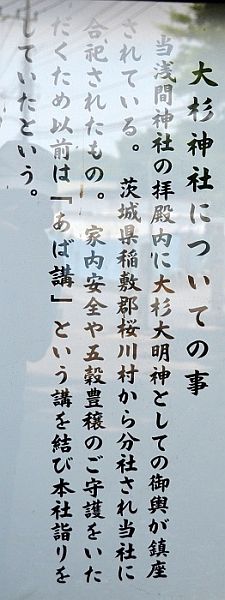 大杉神社についての事
当浅間神社の拝殿内に大杉大明神としての御輿が鎮座
されている。 茨城県稲敷郡桜川村から分社され当社に
合祀されたもの。 家内安全や五穀豊穣のご守護をいた
だくため以前は『あば講』という講を結び本社詣りを
していたという。